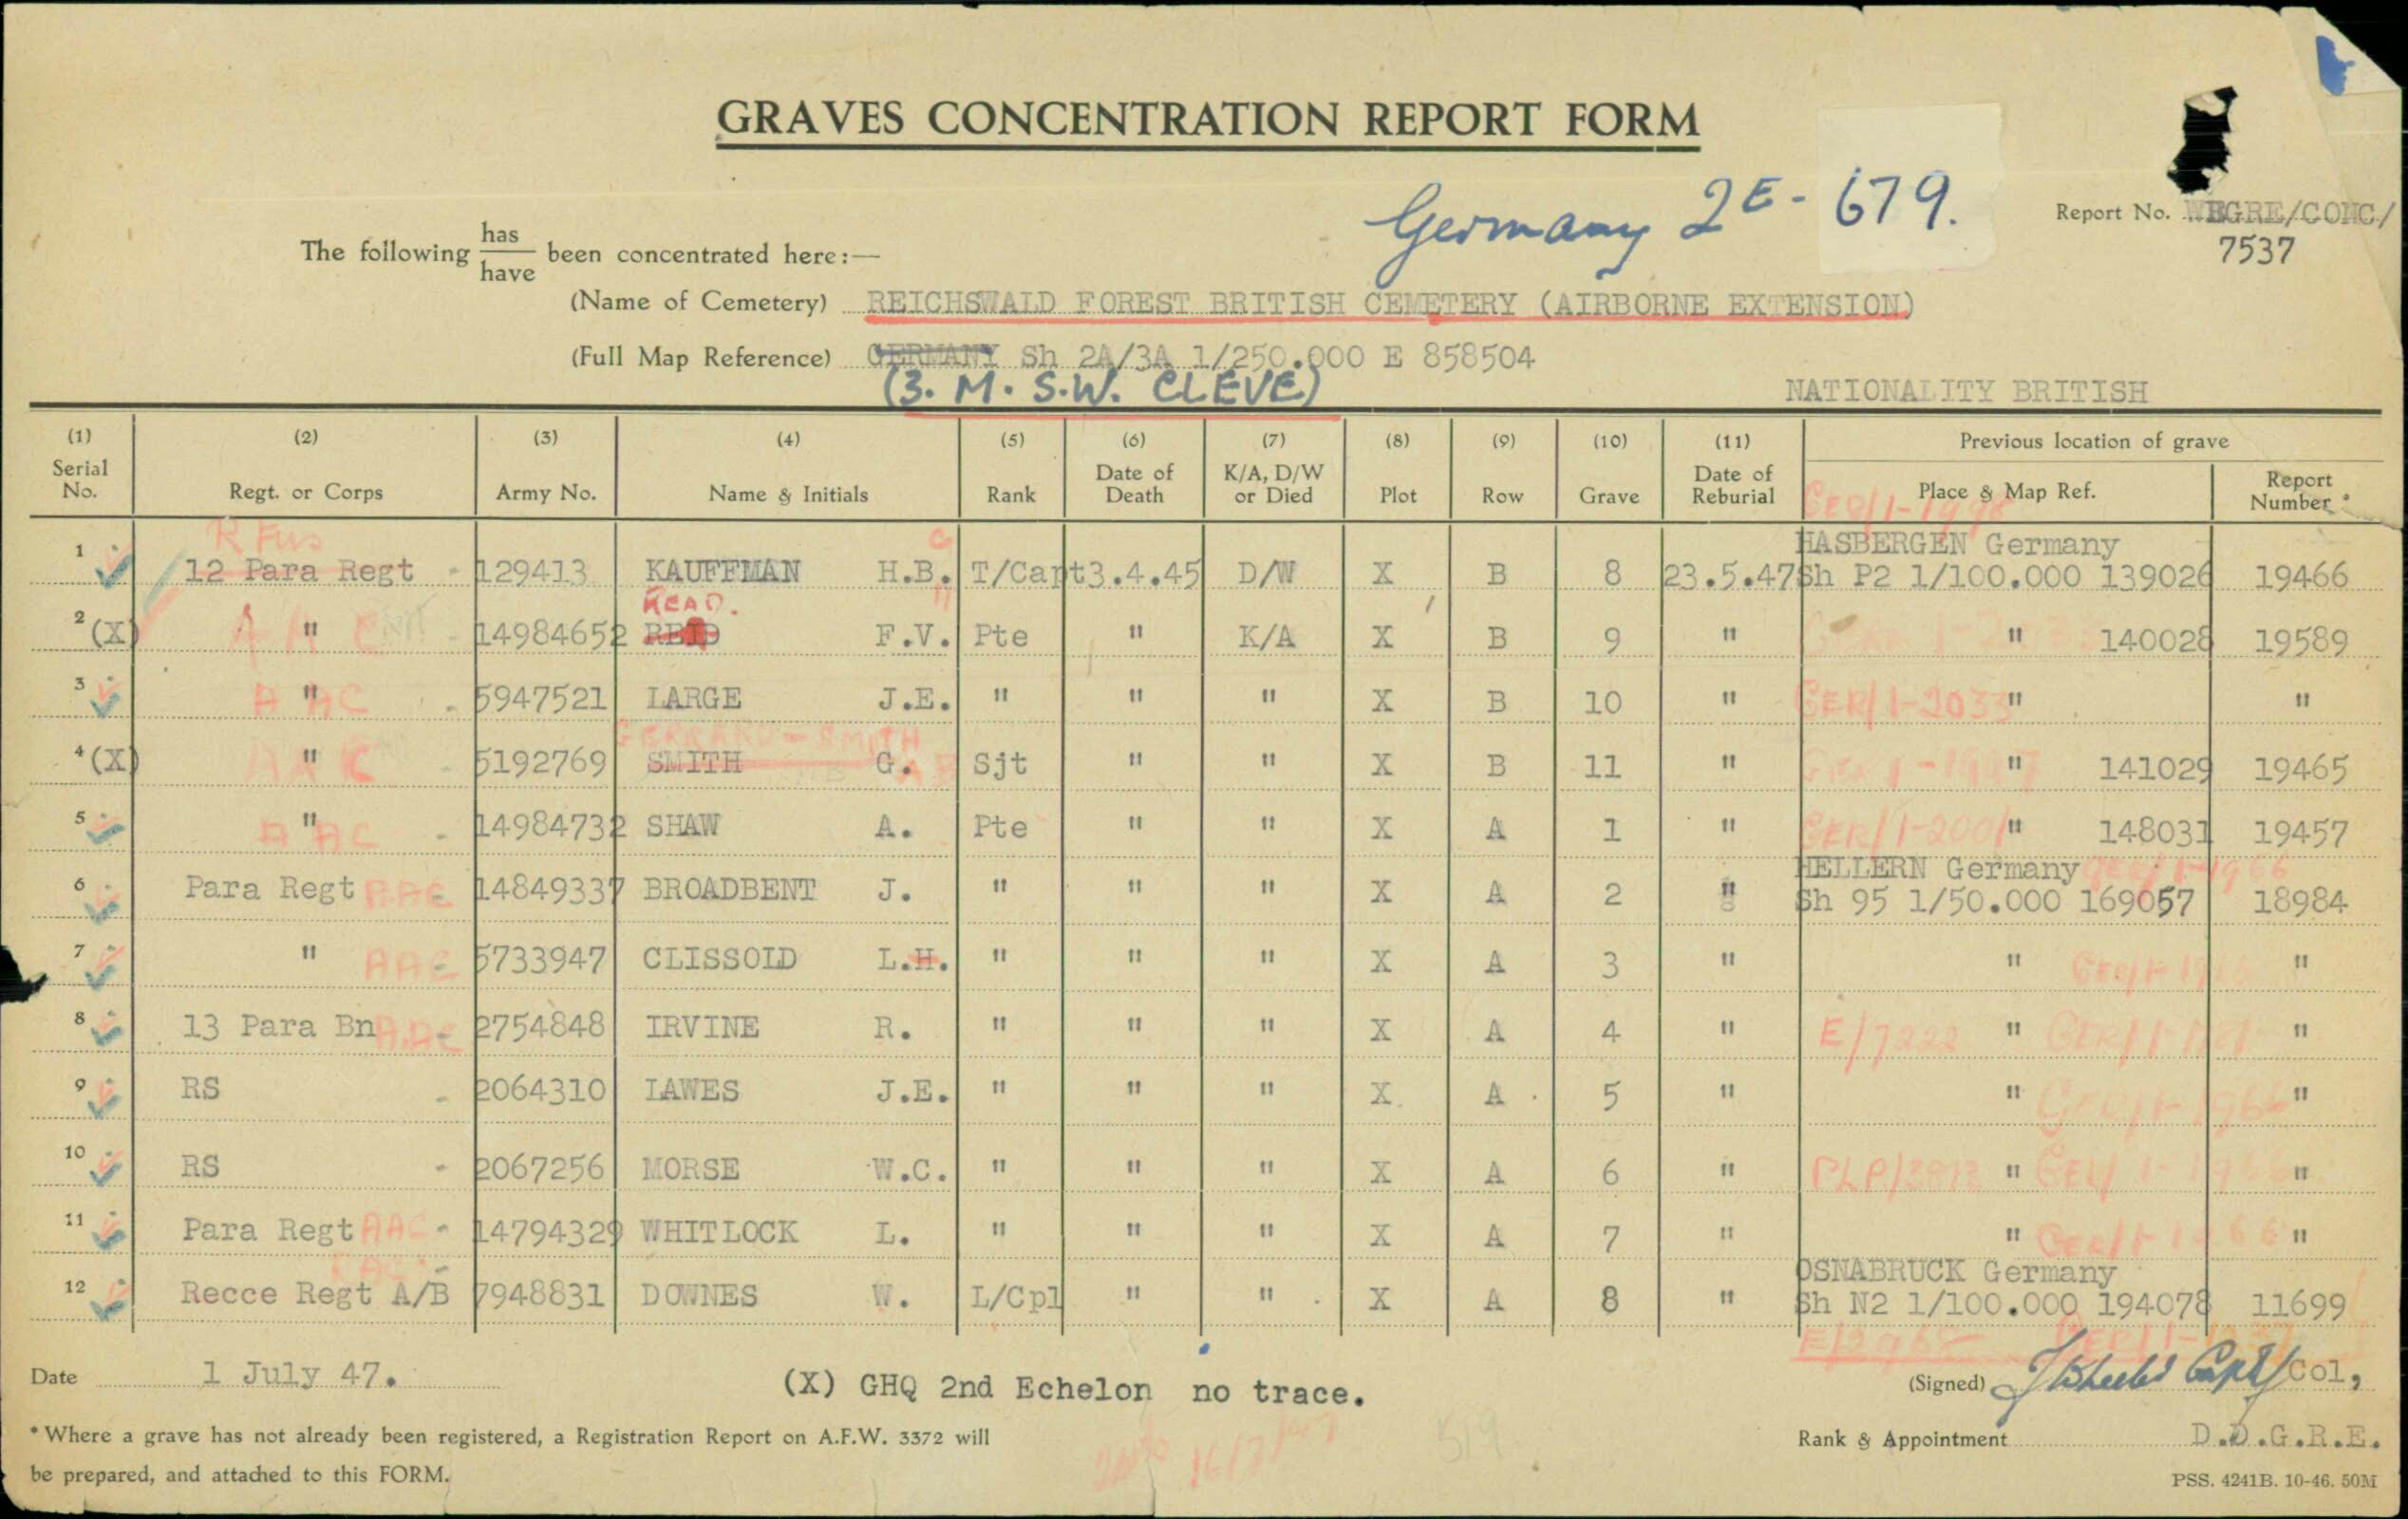 GRAVES CONCENTRATION REPORT FORM
Germany 2E - 679.
Report No. WEGRE/CONC/
7537
The following has/have been concentrated here:—
(Name of Cemetery) REICHSWALD FOREST BRITISH CEMETERY (AIRBORNE EXTENSION)
(Full Map Reference) GERMANY Sh 2A/3A 1/250.000 E 858504
(3. M. S.W. CLEVE)
NATIONALITY BRITISH
(1) (2) (3) (4) (5) (6) (7) (8) (9) (10) (11) Previous location of grave
Serial No. Regt. or Corps Army No. Name & Initials Rank Date of Death K/A, D/W or Died Plot Row Grave Date of Reburial Place & Map Ref. Report Number *
R Fus
HASBERGEN Germany
1 12 Para Regt 129413 KAUFFMAN H.B. T/Capt 3.4.45 D/W X B 8 23.5.47 Sh P2 1/100.000 139026 19466
READ.
2 (X) AAC " 14984652 REID F.V. Pte " K/A X B 9 " " 140028 19589
3 AAC " 5947521 LARGE J.E. " " " X B 10 " GER/1-2033 " "
GERRARD-SMITH
4 (X) AAC " 5192769 SMITH G. Sjt " " X B 11 " " 141029 19465
5 AAC " 14984732 SHAW A. Pte " " X A 1 " " 148031 19457
HELLERN Germany
6 Para Regt AAC 14849337 BROADBENT J. " " " X A 2 " Sh 95 1/50.000 169057 18984
7 " AAC 5733947 CLISSOLD L.H. " " " X A 3 " " "
8 13 Para Bn AAC 2754848 IRVINE R. " " " X A 4 " E/7222 " "
9 RS 2064310 LAWES J.E. " " " X A 5 " " "
10 RS 2067256 MORSE W.C. " " " X A 6 " " "
11 Para Regt AAC 14794329 WHITLOCK L. " " " X A 7 " " "
OSNABRUCK Germany
12 Recce Regt A/B 7948831 DOWNES W. L/Cpl " " X A 8 " Sh N2 1/100.000 194078 11699
Date 1 July 47.
(X) GHQ 2nd Echelon no trace.
(Signed) Capt/Col,
* Where a grave has not already been registered, a Registration Report on A.F.W. 3372 will
be prepared, and attached to this FORM.
519
Rank & Appointment D.D.G.R.E.
PSS. 4241B. 10-46. 50M